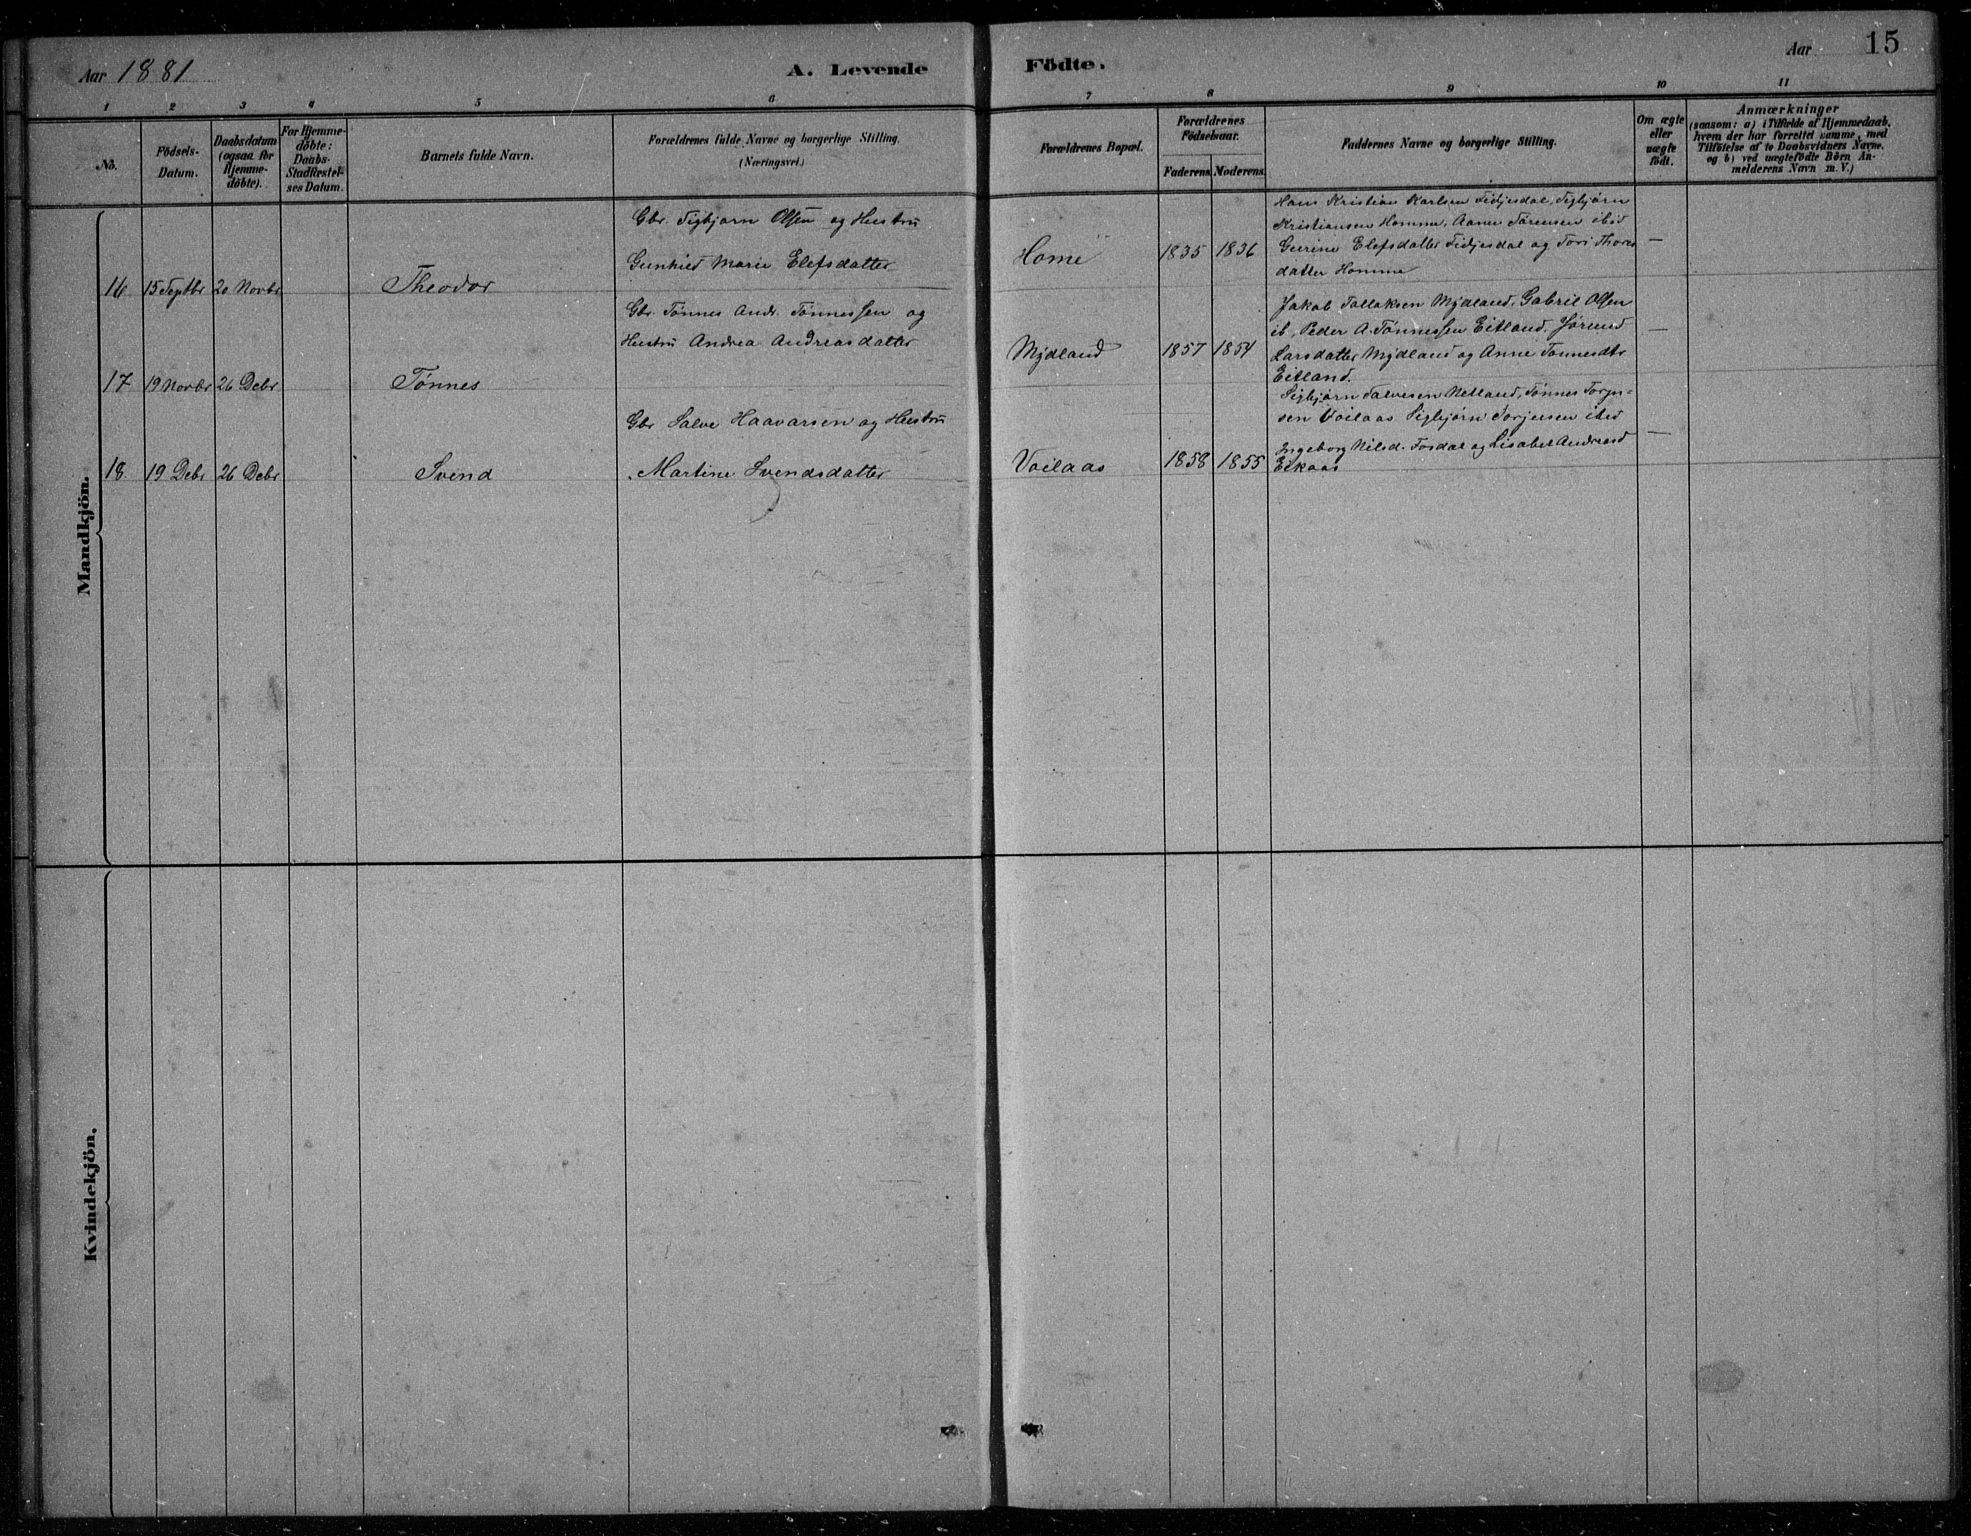 Aar 1881
A. Levende Födte.
Aar 15
1 2 3 4 5 6 7 8 9 10 11
No.
Födsels-
Datum.
Daabsdatum
(ogsaa for
Hjemme-
döbte).
For Hjemme-
döbte:
Daabs-
Stadfæstel-
ses Datum.
Barnets fulde Navn.
Forældrenes fulde Navne og borgerlige Stilling.
(Næringsvei.)
Forældrenes Bopæl.
Forældrenes
Födselsaar.
Faderens Moderens.
Faddernes Navne og borgerlige Stilling.
Om ægte
eller
uægte
födt.
Anmærkninger
(saasom: a) i Tilfælde af Hjemmedaab,
hvem der har forrettet samme, med
Tilföielse af to Daabsvidners Navne,
og b) ved uægtefödte Börn An-
melderens Navn m. V.)
Mandkjön.
16 15 Septbr 20 Novbr
Theodor
Gbr. Sigbjørn Olsen og Hustru
Gunhild Marie Elefsdatter
Home
1835 1836
Hans Kristian Karlsen Fidjesdal, Sigbjørn
Kristiansen Homme, Aanen Sørensen ibid
Gurine Elefsdatter Fidjesdal og Tori Thores
datter Homme
—
17 19 Novbr 26 Debr
Tønnes
Gbr. Tønnes Andr. Tønnessen og
Hustru Andrea Andreasdatter
Mydland
1857 1854
Jakob Tollaksen Mydland, Gabriel Olsen
ib, Peder A. Tønnessen Eitland, Jørund
Larsdatter Mydland og Anne Tønnesdtr
Eitland.
—
18. 19 Debr 26 Debr
Svend
Gbr Salve Haavorsen og Hustru
Martine Svendsdatter
Voilaas
1858 1855
Sigbjørn Salvesen Netland, Tønnes Torju-
sen Voilaas Sigbjørn Torjusen ibid
Ingeborg Nilsd. Fosdal og Lisabet Andreasd
Eikaas
—
Kvindekjön.